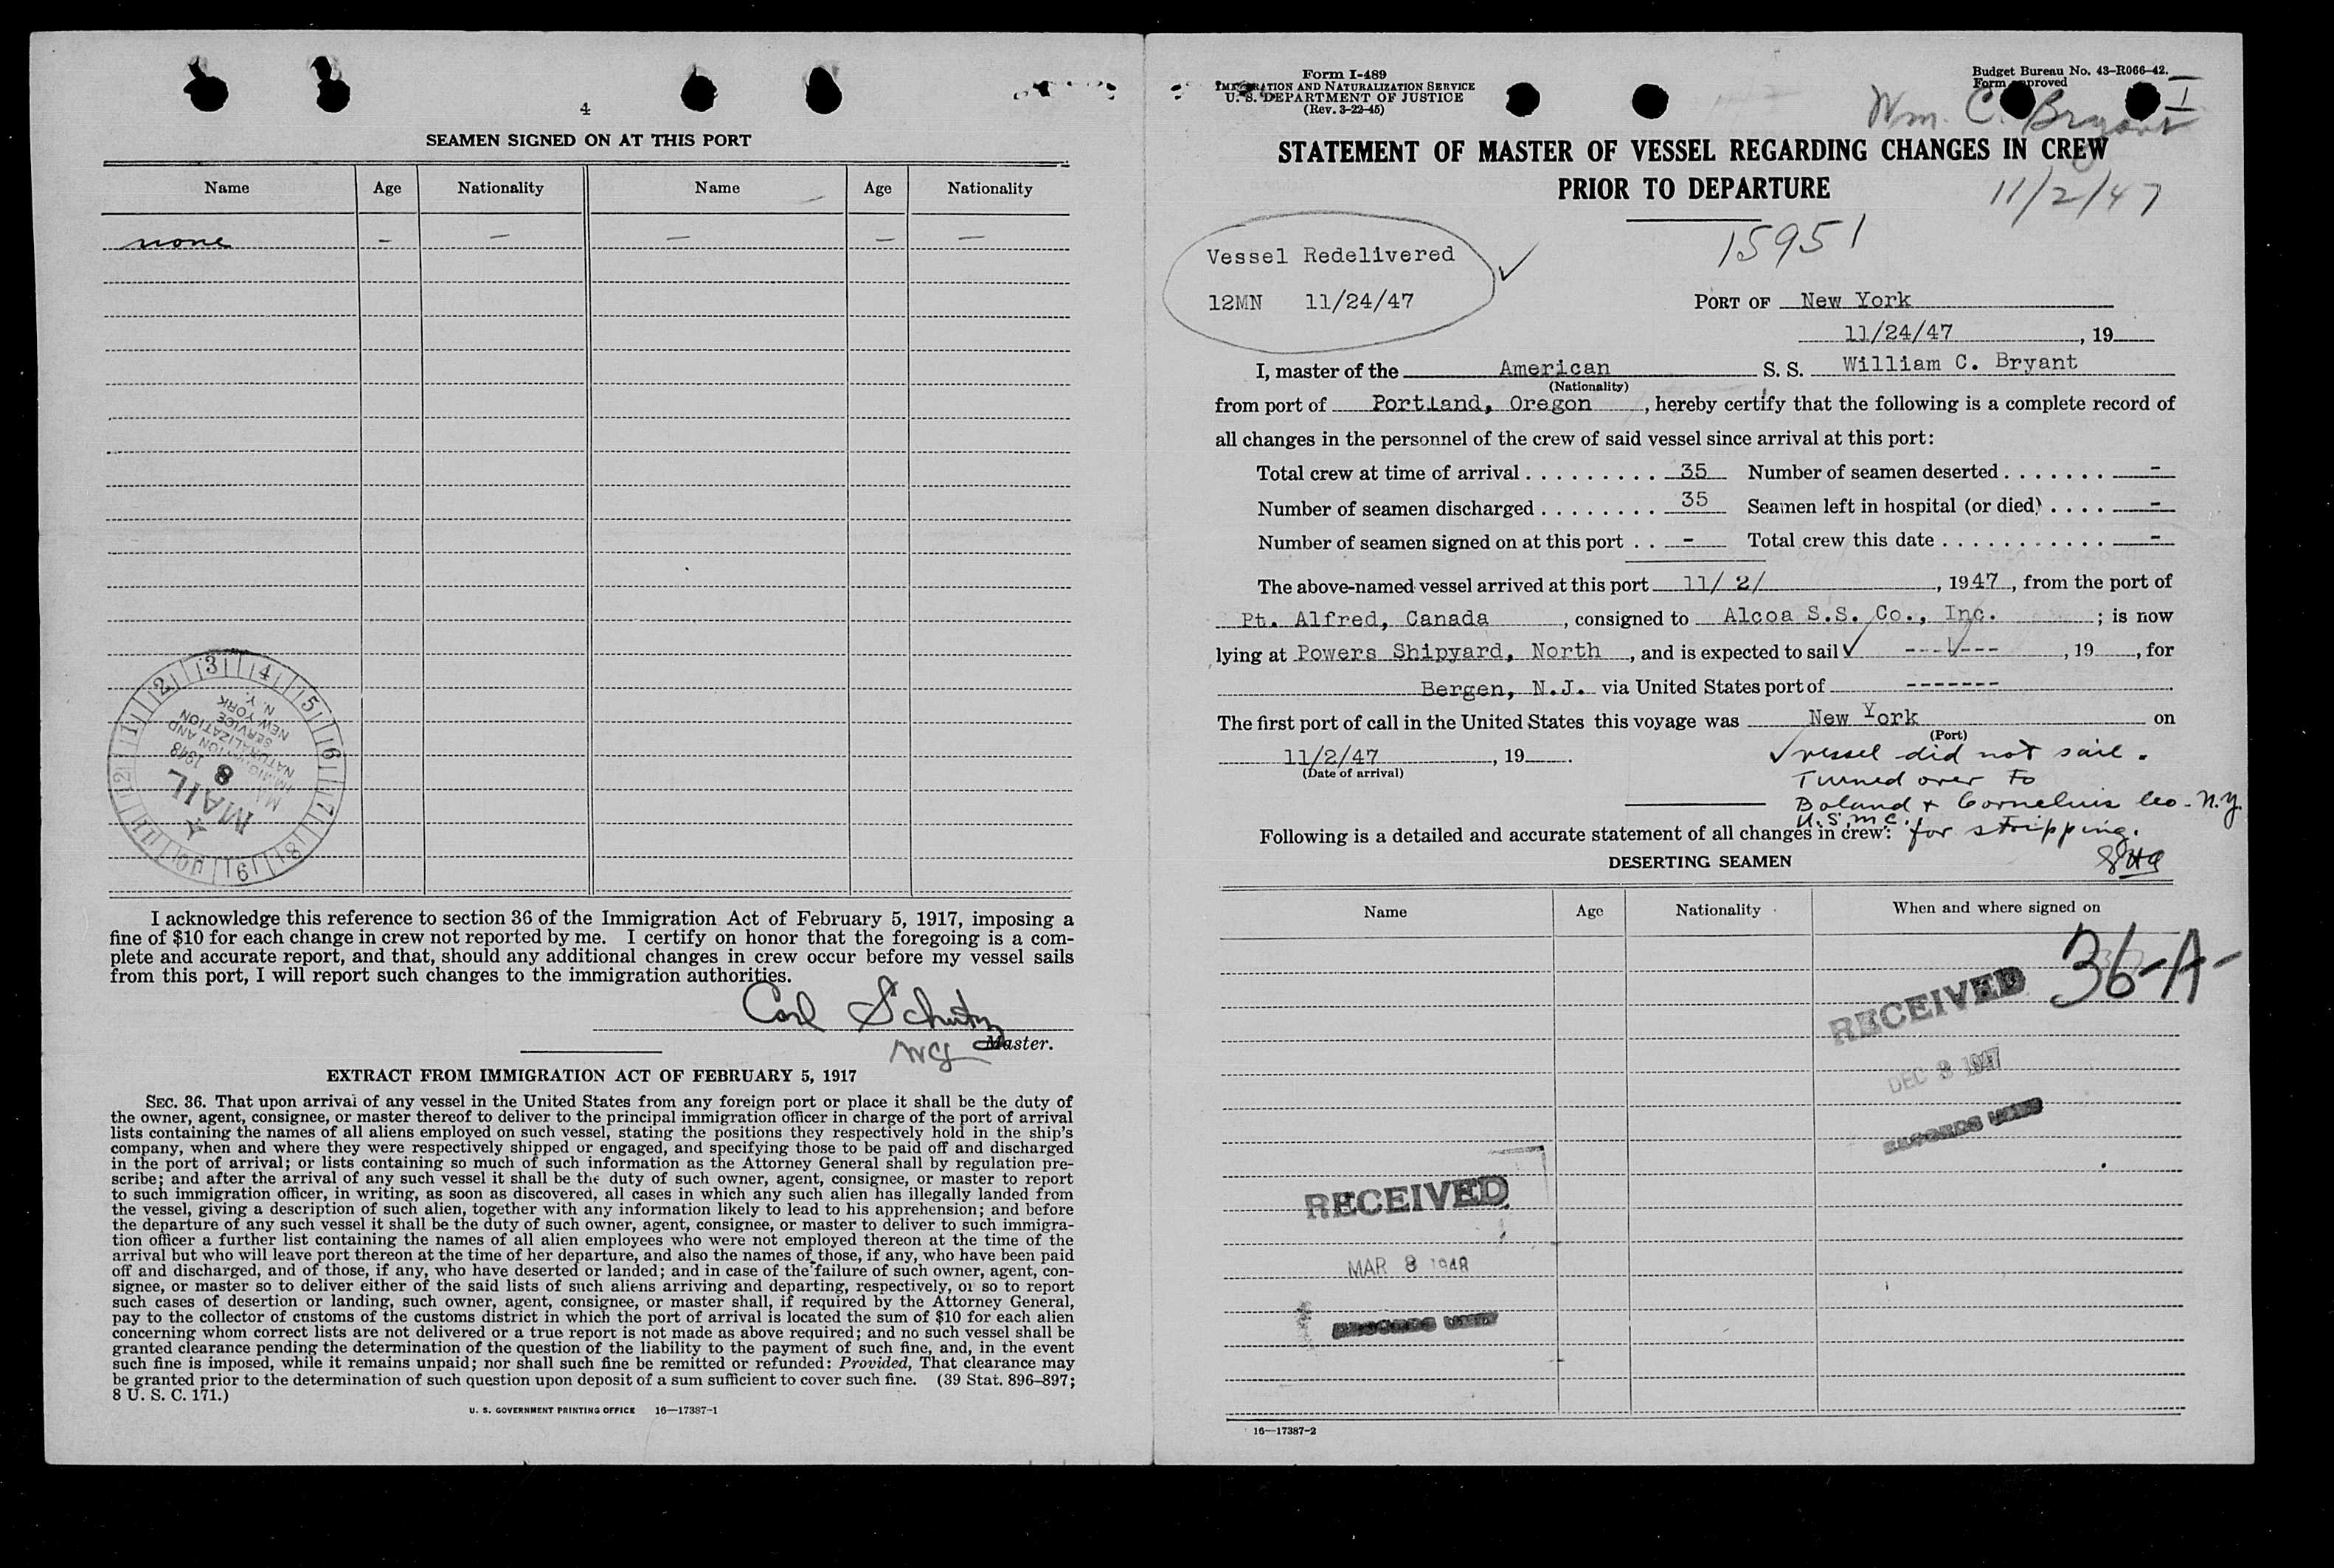 4
SEAMEN SIGNED ON AT THIS PORT
Name Age Nationality Name Age Nationality
none - — — — —
3 4 5 6 7 8 9 10 11 12 1 2
MAIL
8
1948
NEW YORK
N. Y.
I acknowledge this reference to section 36 of the Immigration Act of February 5, 1917, imposing a
fine of $10 for each change in crew not reported by me. I certify on honor that the foregoing is a com-
plete and accurate report, and that, should any additional changes in crew occur before my vessel sails
from this port, I will report such changes to the immigration authorities.
Carl
Master.
EXTRACT FROM IMMIGRATION ACT OF FEBRUARY 5, 1917
SEC. 36. That upon arrival of any vessel in the United States from any foreign port or place it shall be the duty of
the owner, agent, consignee, or master thereof to deliver to the principal immigration officer in charge of the port of arrival
lists containing the names of all aliens employed on such vessel, stating the positions they respectively hold in the ship's
company, when and where they were respectively shipped or engaged, and specifying those to be paid off and discharged
in the port of arrival; or lists containing so much of such information as the Attorney General shall by regulation pre-
scribe; and after the arrival of any such vessel it shall be the duty of such owner, agent, consignee, or master to report
to such immigration officer, in writing, as soon as discovered, all cases in which any such alien has illegally landed from
the vessel, giving a description of such alien, together with any information likely to lead to his apprehension; and before
the departure of any such vessel it shall be the duty of such owner, agent, consignee, or master to deliver to such immigra-
tion officer a further list containing the names of all alien employees who were not employed thereon at the time of the
arrival but who will leave port thereon at the time of her departure, and also the names of those, if any, who have been paid
off and discharged, and of those, if any, who have deserted or landed; and in case of the failure of such owner, agent, con-
signee, or master so to deliver either of the said lists of such aliens arriving and departing, respectively, or so to report
such cases of desertion or landing, such owner, agent, consignee, or master shall, if required by the Attorney General,
pay to the collector of customs of the customs district in which the port of arrival is located the sum of $10 for each alien
concerning whom correct lists are not delivered or a true report is not made as above required; and no such vessel shall be
granted clearance pending the determination of the question of the liability to the payment of such fine, and, in the event
such fine is imposed, while it remains unpaid; nor shall such fine be remitted or refunded: Provided, That clearance may
be granted prior to the determination of such question upon deposit of a sum sufficient to cover such fine. (39 Stat. 896–897;
8 U. S. C. 171.)
U. S. GOVERNMENT PRINTING OFFICE 16—17387-1
Form I-489
IMMIGRATION AND NATURALIZATION SERVICE
U. S. DEPARTMENT OF JUSTICE
(Rev. 3-22-45)
Budget Bureau No. 43–R066–42.
Form approved
Wm. C. Bryant
STATEMENT OF MASTER OF VESSEL REGARDING CHANGES IN CREW
PRIOR TO DEPARTURE
11/2/47
15951
Vessel Redelivered
12MN 11/24/47
PORT OF New York
11/24/47, 19
I, master of the American S. S. William C. Bryant
(Nationality)
from port of Portland, Oregon, hereby certify that the following is a complete record of
all changes in the personnel of the crew of said vessel since arrival at this port:
Total crew at time of arrival . . . . . . . . . 35 Number of seamen deserted . . . . . . . -
Number of seamen discharged . . . . . . . . 35 Seamen left in hospital (or died) . . . . -
Number of seamen signed on at this port . . - Total crew this date . . . . . . . . . . . -
The above-named vessel arrived at this port 11/ 2/, 1947, from the port of
Pt. Alfred, Canada, consigned to Alcoa S.S. Co., Inc. ; is now
lying at Powers Shipyard, North, and is expected to sail ✓ -------, 19, for
Bergen, N.J. via United States port of -------
The first port of call in the United States this voyage was New York on
(Port)
11/2/47, 19.
(Date of arrival)
✓ vessel did not sail.
Turned over to
Boland & Cornelius Co - N.Y.
U.S.M.C. for stripping.
Following is a detailed and accurate statement of all changes in crew:
DESERTING SEAMEN
Name Age Nationality When and where signed on
36-A-
RECEIVED
DEC 3 1947
RECORDS UNIT
RECEIVED
MAR 8 1948
RECORDS UNIT
16—17387-2